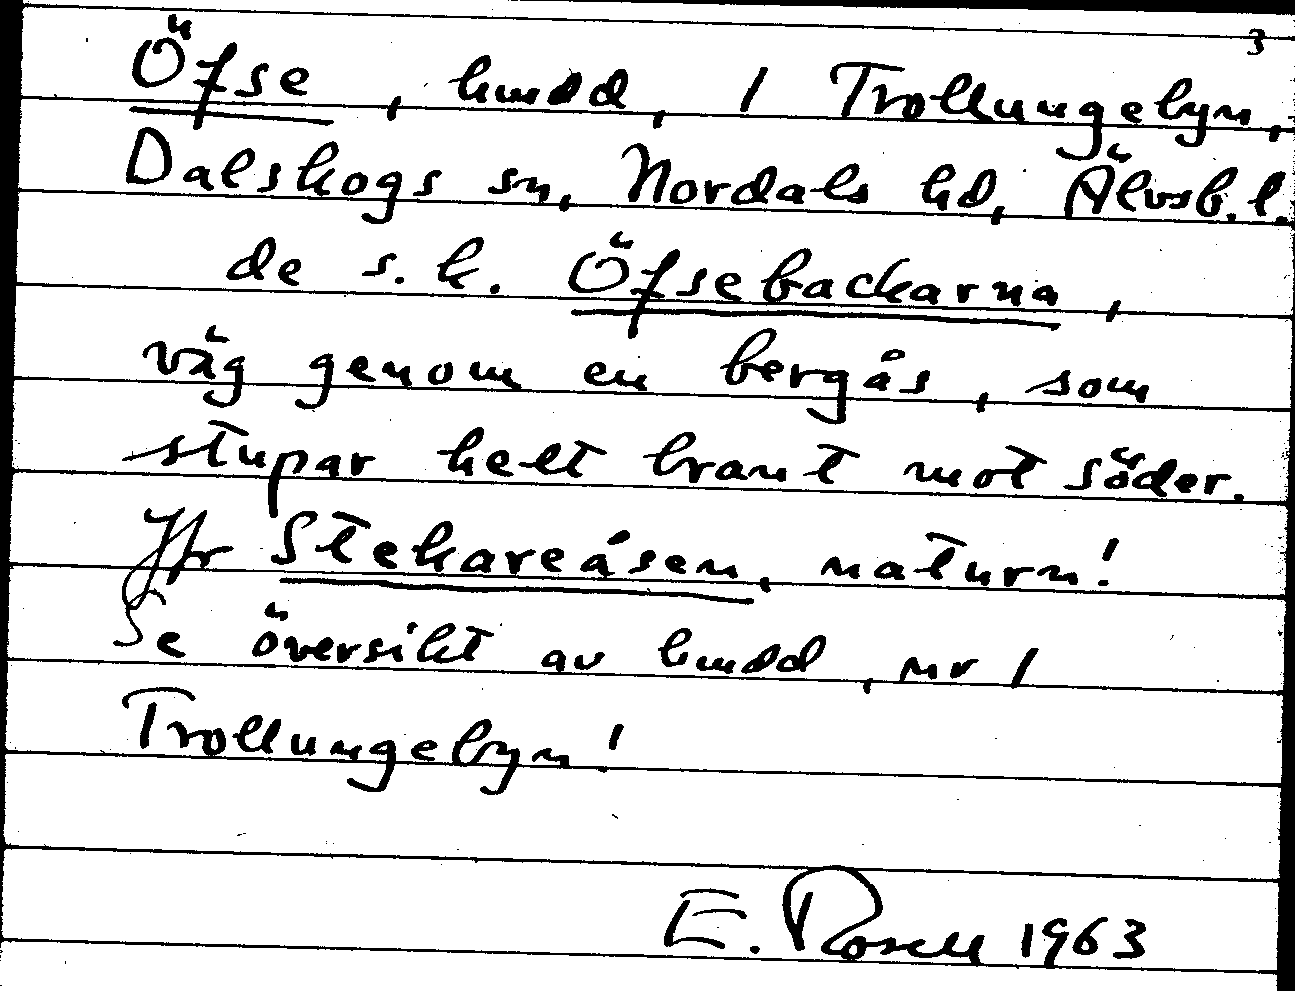 3
Öfse, hmdd, 1 Trollungebyn,
Dalskogs sn, Nordals hd, Älvsb. l.
de s. k. Öfsebackarna,
väg genom en bergås, som
stupar helt brant mot söder.
Jfr Stekareåsen, naturn!
Se översikt av hmdd, nr 1
Trollungebyn!
E. Rosell 1963